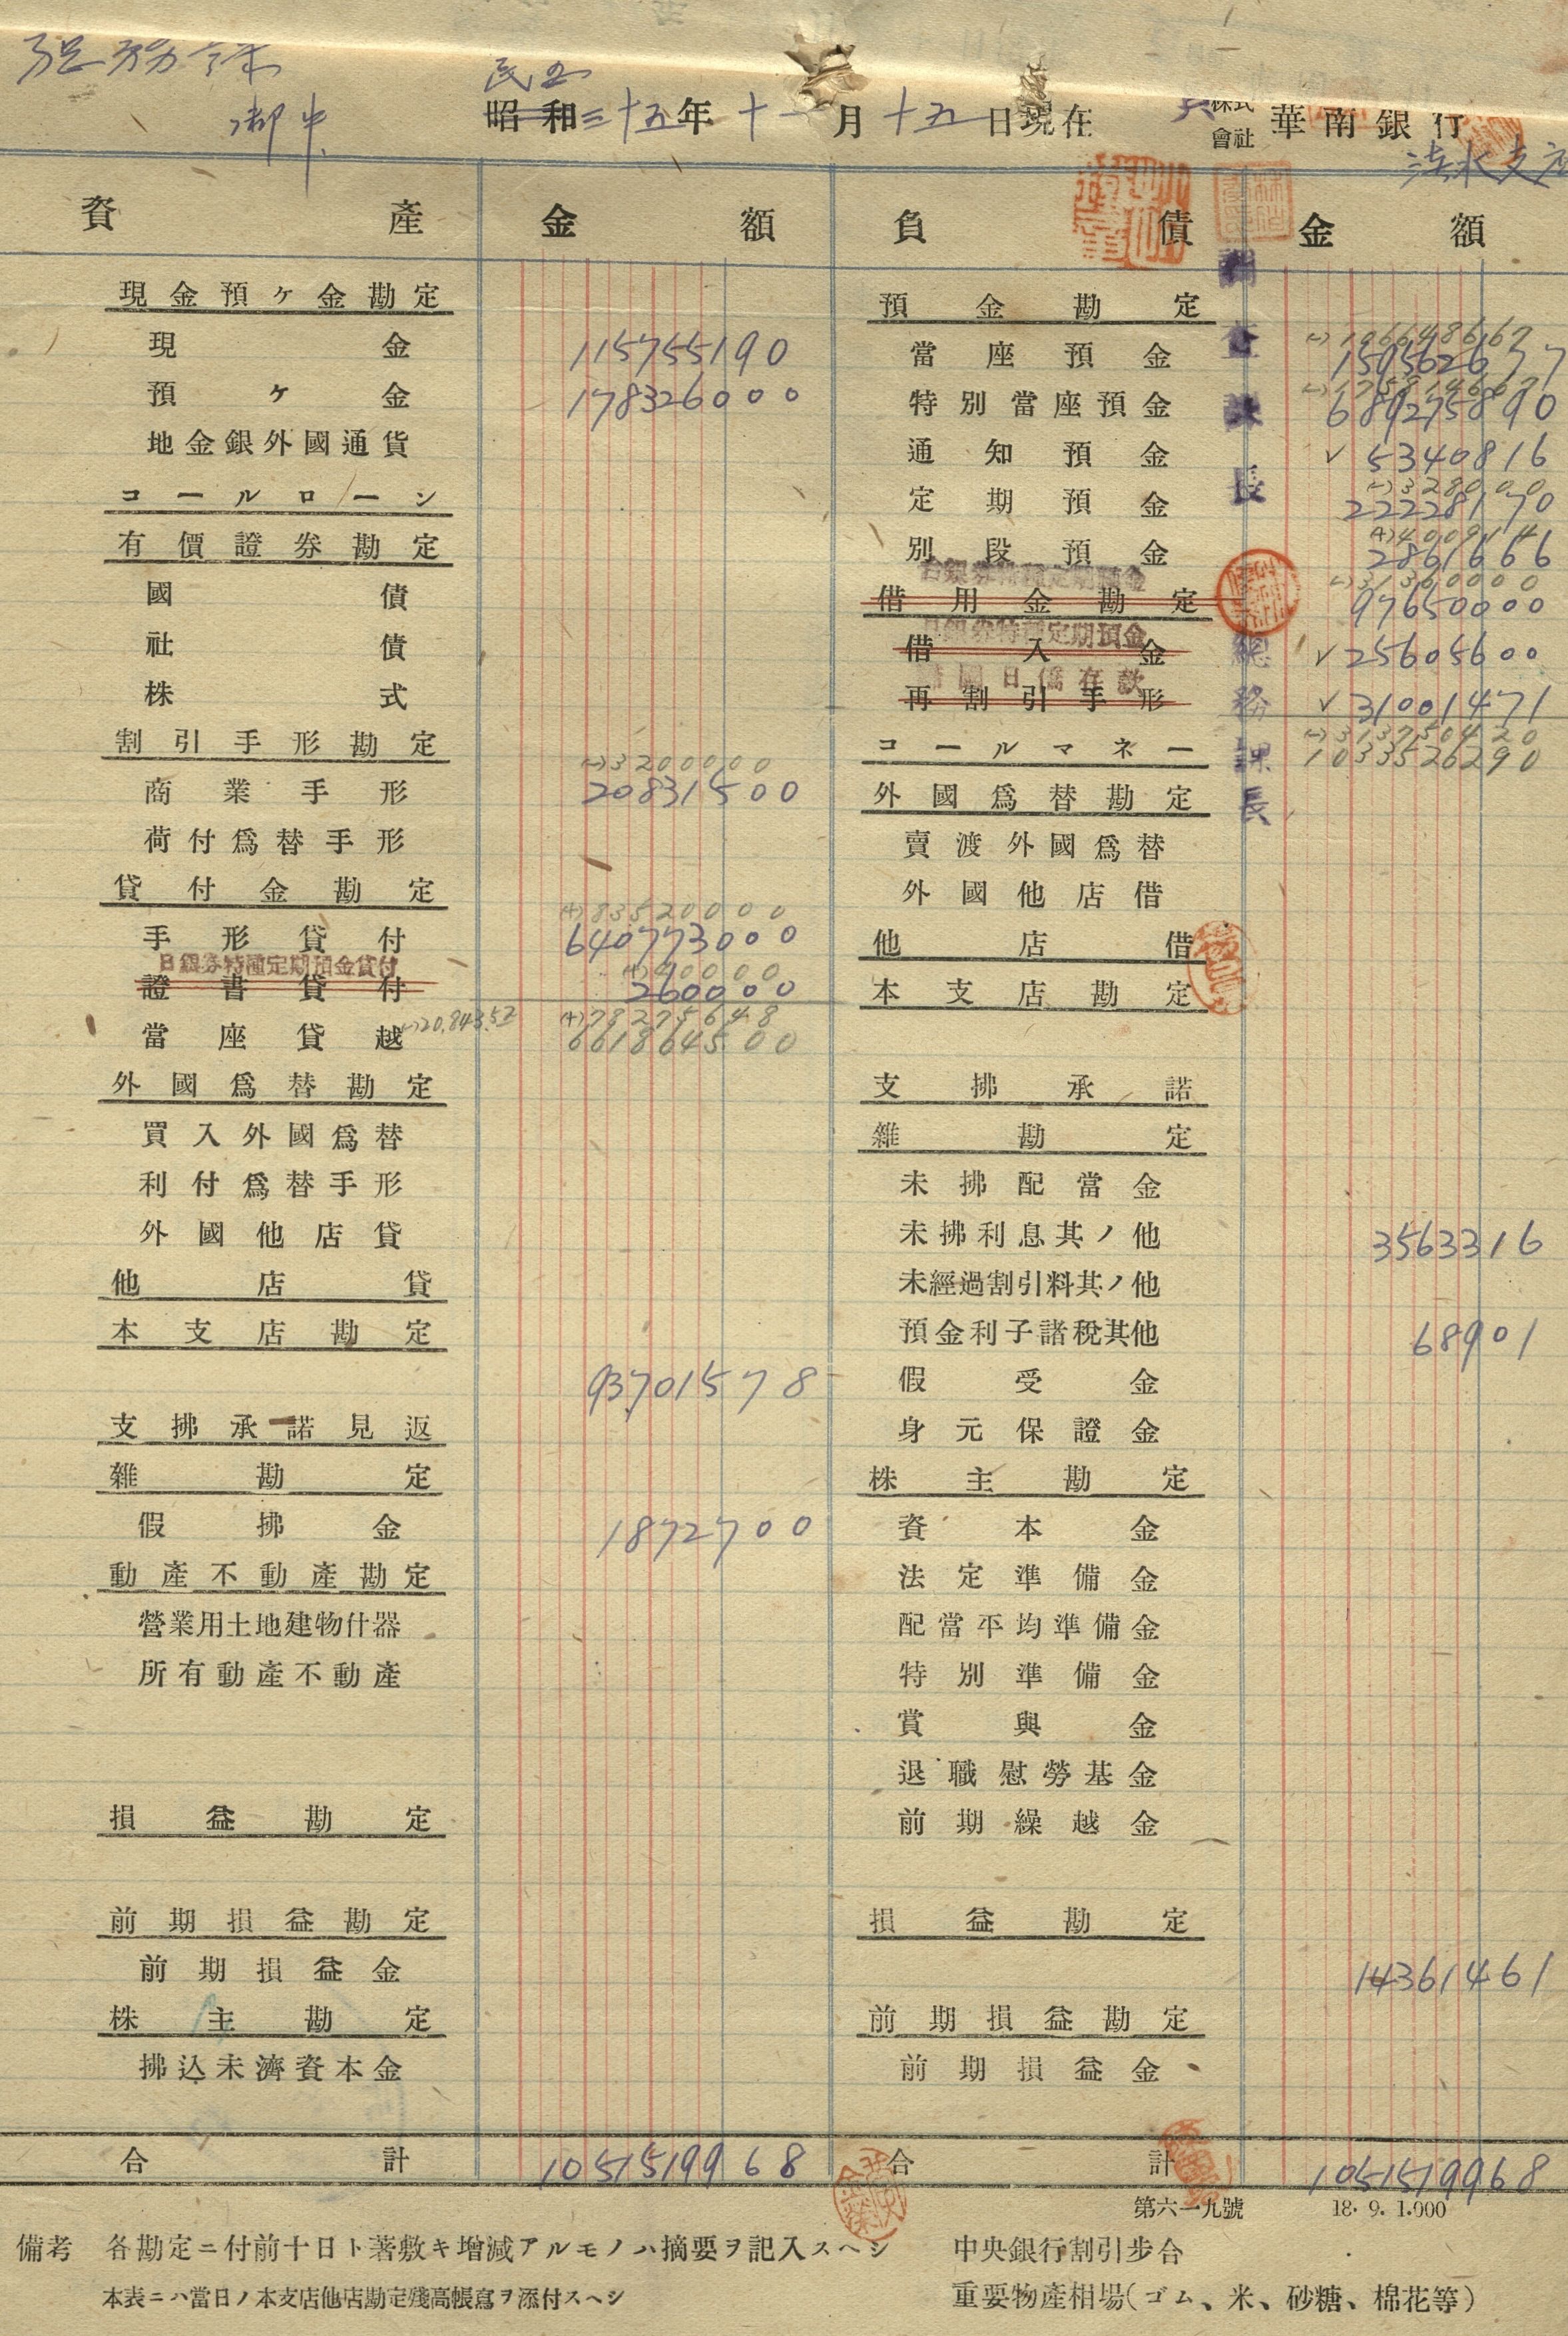 御中
民國
昭和三十五年十一月十五日現在 株式會社 華南銀行
淡水支店
資產 金額 負債 金額
現金預ケ金勘定
現金 115755190
預ケ金 178326000
地金銀外國通貨
コールローン
有價證券勘定
國債
社債
株式
割引手形勘定
(-)3200000
商業手形 20831500
荷付爲替手形
貸付金勘定
(+)83520000
手形貸付 640773000
日銀券特種定期預金貸付
(+)40000
證書貸付 260000
(-)20,843.52 (+)78275648
當座貸越 661864500
外國爲替勘定
買入外國爲替
利付爲替手形
外國他店貸
他店貸
本支店勘定
93701578
支拂承諾見返
雜勘定
假拂金 1872700
動產不動產勘定
營業用土地建物什器
所有動產不動產
損益勘定
前期損益勘定
前期損益金
株主勘定
拂込未濟資本金
合計 1051519968
預金勘定
(-)106648667
當座預金 159562677
特別當座預金 689275890
通知預金 ✓5340816
(-)328000
定期預金 22228170
(+)400914
別段預金 2861666
台銀券特種定期預金
(-)31360000
借用金勘定 97650000
日銀券特種定期預金
借入金 ✓25605600
歸國日僑存款
再割引手形 ✓31001471
(-)313750420
コールマネー 1033526290
外國爲替勘定
賣渡外國爲替
外國他店借
他店借
本支店勘定
支拂承諾
雜勘定
未拂配當金
未拂利息其ノ他 3563316
未經過割引料其ノ他
預金利子諸稅其他 68901
假受金
身元保證金
株主勘定
資本金
法定準備金
配當平均準備金
特別準備金
賞與金
退職慰勞基金
前期繰越金
損益勘定
14361461
前期損益勘定
前期損益金
合計 1051519968
調查課長
總務課長
第六一九號 18.9.1.000
備考 各勘定ニ付前十日ト著敷キ增減アルモノハ摘要ヲ記入スヘシ
本表ニハ當日ノ本支店他店勘定殘高帳寫ヲ添付スヘシ
中央銀行割引步合
重要物產相場(ゴム、米、砂糖、棉花等)